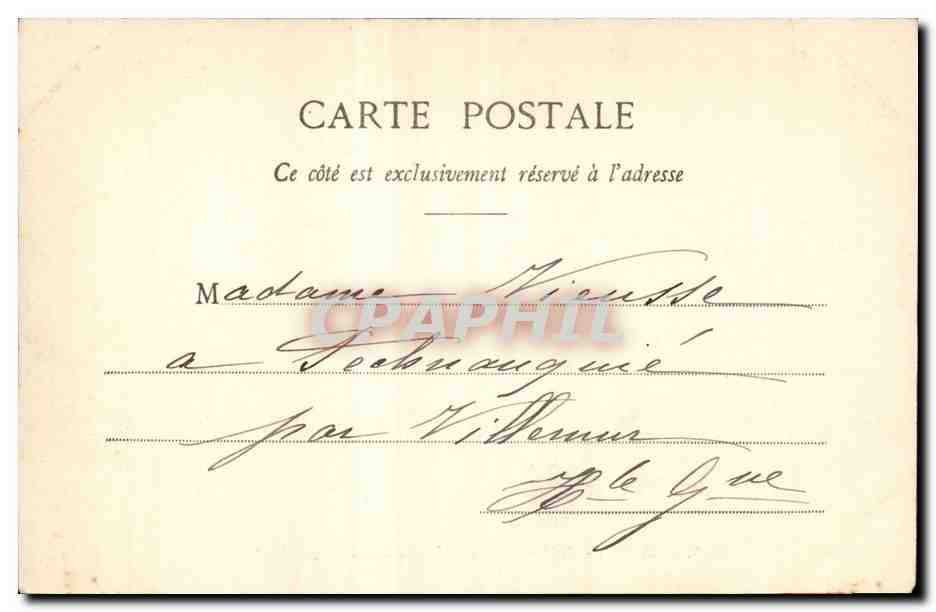 CARTE POSTALE
Ce côté est exclusivement réservé à l'adresse
Madame Vieusse
CPAPHIL
a Pechnauquié
par Villemur
Hte Gne